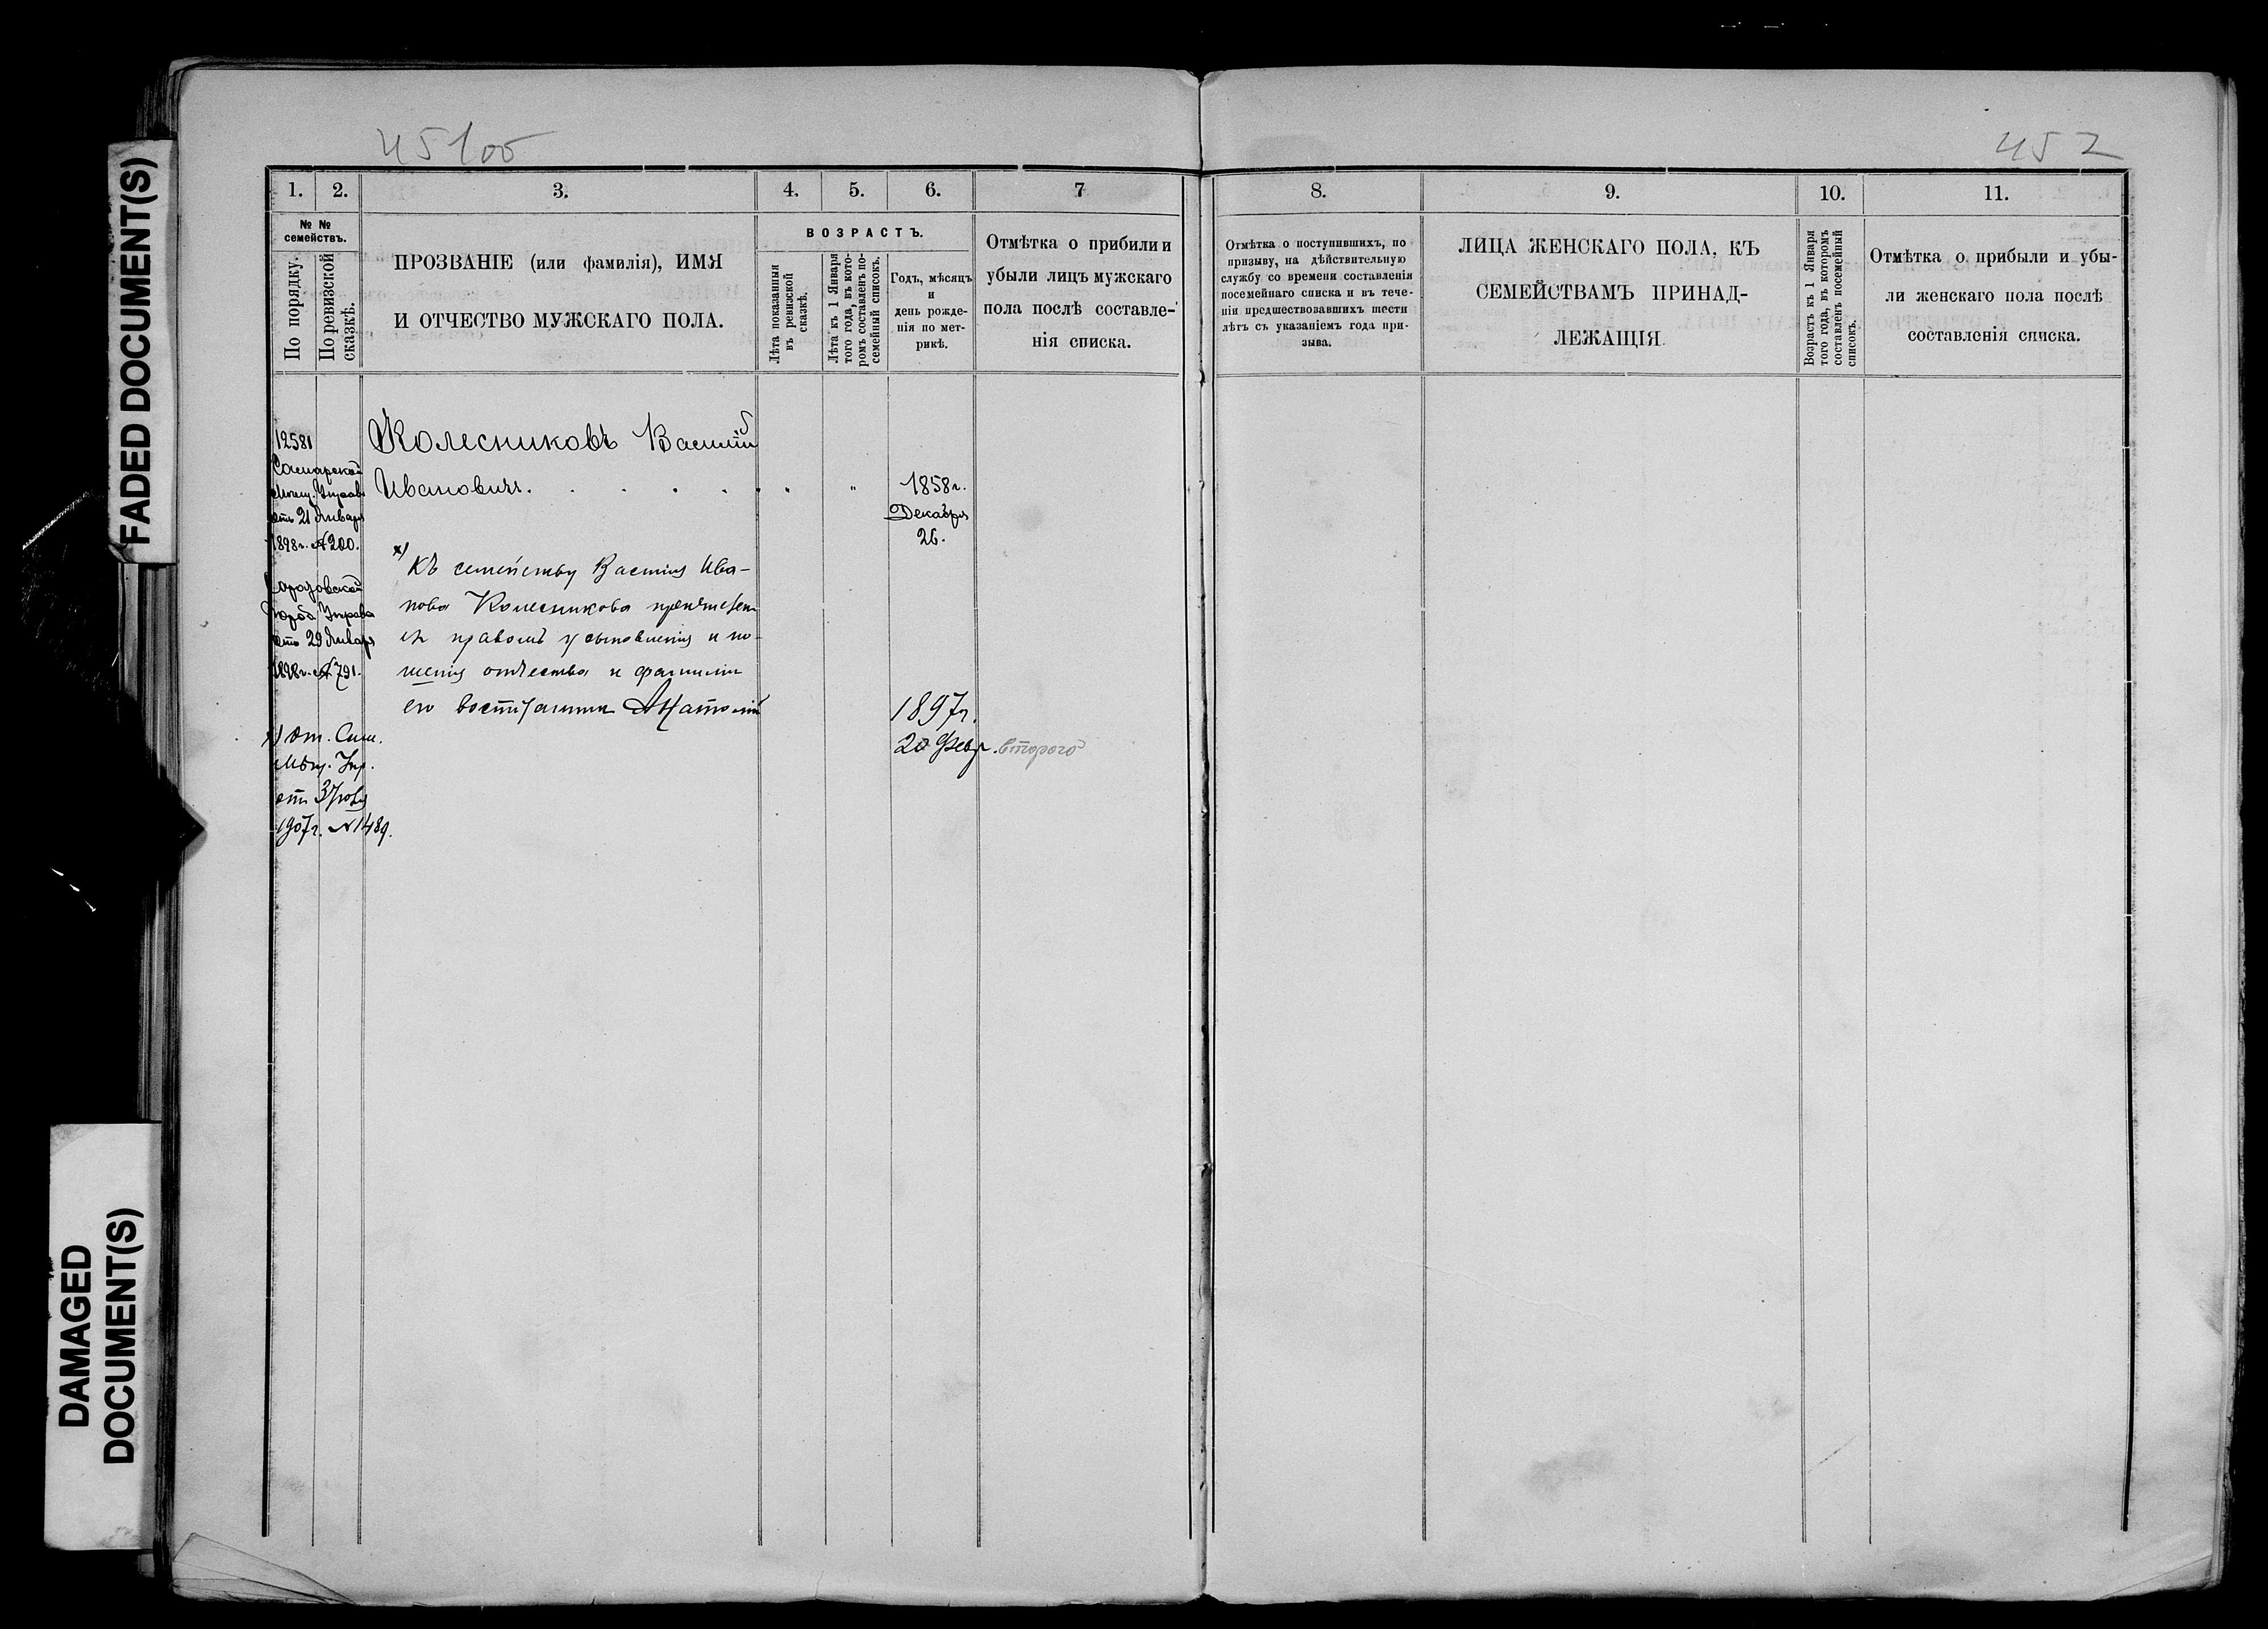 FADED DOCUMENT(S)
DAMAGED
DOCUMENT(S)
451об
452
1.
2.
3.
4.
5.
6.
7
8.
9.
10.
11.
№ №
семействъ.
По порядку.
По ревизской
сказкѣ.
ПРОЗВАНІЕ (или фамилія), ИМЯ
И ОТЧЕСТВО МУЖСКАГО ПОЛА.
ВОЗРАСТЪ.
Лѣта показанныя
въ ревизской
сказкѣ.
Лѣта къ 1 Января
того года, въ кото-
ромъ составленъ по-
семейный списокъ.
Годъ, мѣсяцъ
и
день рожде-
нія по мет-
рикѣ.
Отмѣтка о прибыли и
убыли лицъ мужскаго
пола послѣ составле-
нія списка.
Отмѣтка о поступившихъ, по
призыву, на дѣйствительную
службу со времени составленія
посемейнаго списка и въ тече-
ніи предшествовавшихъ шести
лѣтъ съ указаніемъ года при-
зыва.
ЛИЦА ЖЕНСКАГО ПОЛА, КЪ
СЕМЕЙСТВАМЪ ПРИНАД-
ЛЕЖАЩІЯ.
Возрастъ къ 1 Января
того года, въ которомъ
составленъ посемейный
списокъ.
Отмѣтка о прибыли и убы-
ли женскаго пола послѣ
составленія списка.
12581
Самарской
Мѣщ. Управ.
отъ 21 Января
1898г. № 200.
Город. Управа
отъ 29 Января
1898г. № 791.
х) От.
Мѣщ. Упр.
отъ
1907г. № 1489.
Колесниковъ Василій
Ивановичъ. . . . . .
" "
1858г.
Декабря
26.
х) Къ семейству Василія Ива-
нова Колесникова причислен
съ правомъ усыновленія и но-
шенія отчества и фамиліи
его воспитанникъ Анатолій
1897г.
20 Февр. второго